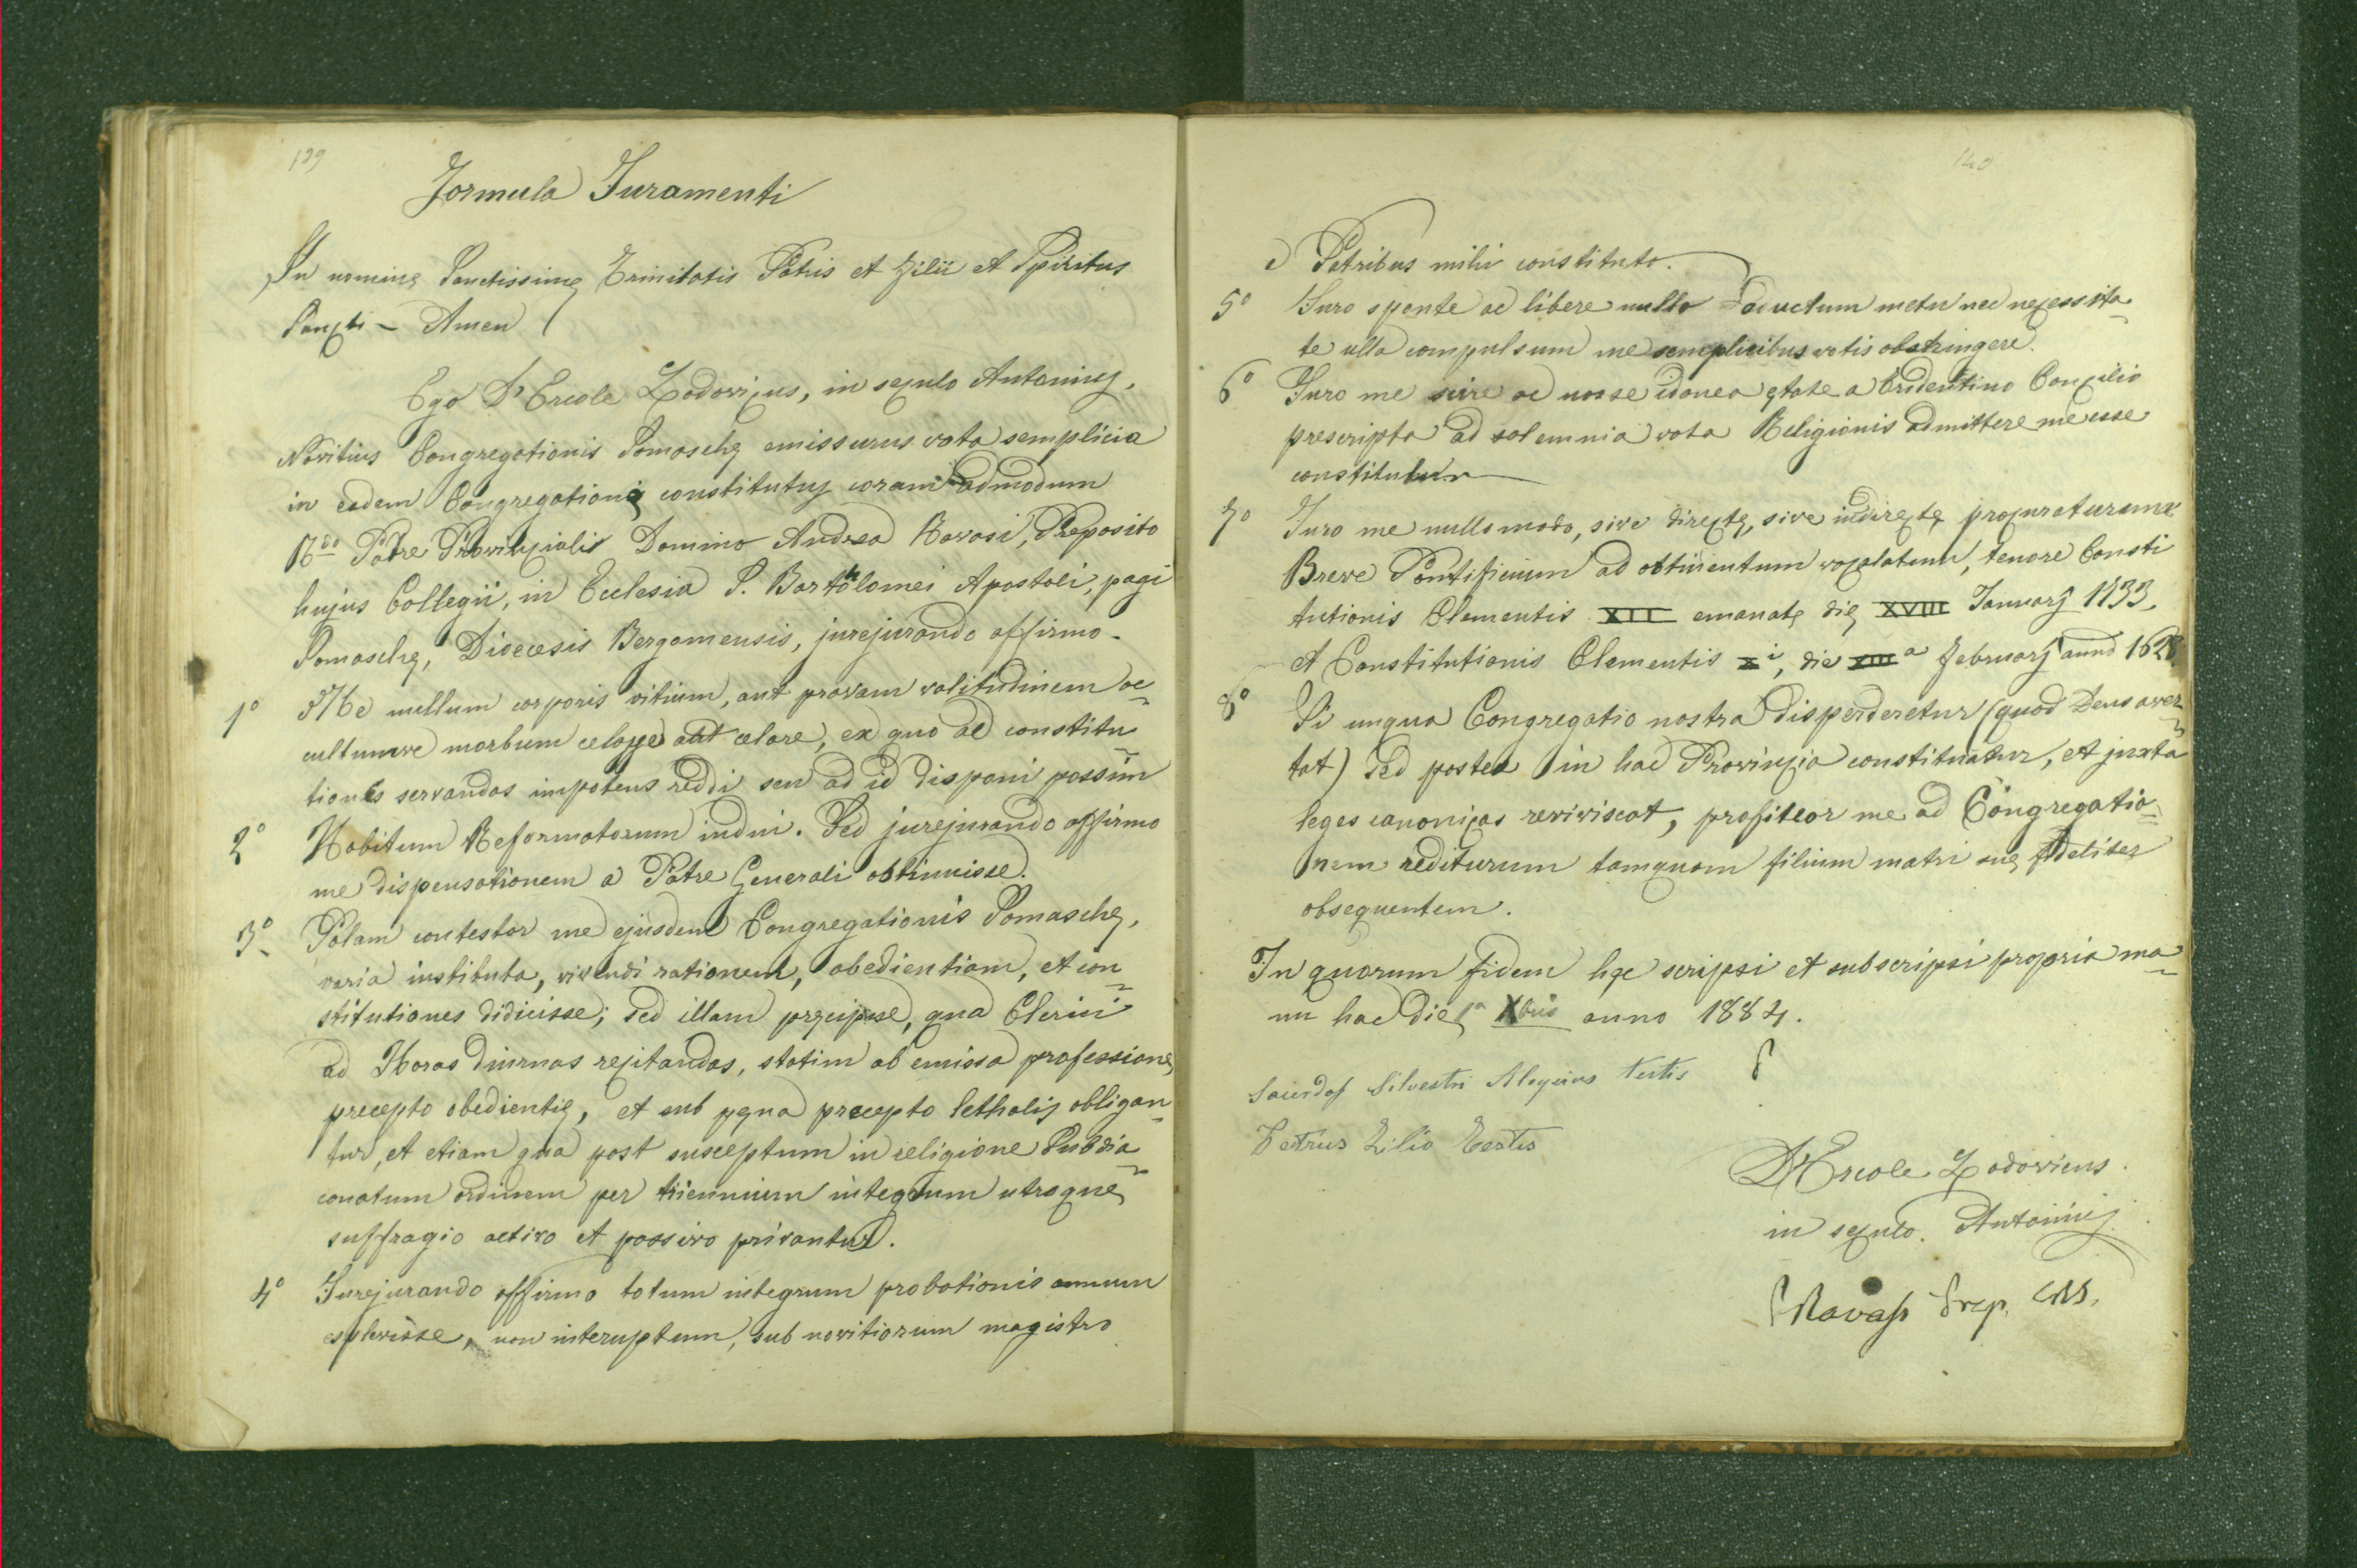 139
Formula Juramenti
In nominę Sanctissimę Trinitatis Patris et Filii et Spiritus
Sancti - Amen
Ego D'Ercole Lodovicus, in seculo Antonius,
Novitius Congregationis Somaschę emissurus vota semplicia
in eadem Congregationę constitutus coram admodum
R.do Patre Provincialis Domino Andrea Ravasi, Preposito
hujus Collegii, in Ecclesia S. Bartholomei Apostoli, pagi
Somaschę, Diocesis Bergomensis, jurejurando affirmo.
1° Me nullum corporis vitium, aut pravam valitudinem oc
cultumve morbum aut celare, ex quo ad constitu
tiones servandas impotens reddi seu ad id disponi possim
2° Habitum Reformatorum indui. Sed jurejurando affirmo
me dispensationem a Patre Generali obtinuisse.
3° Palam contestor me ejusdem Congregationis Somaschę,
varia instituta, vivendi rationem, obedientiam, et con
stitutiones didicisse; sed illam pręcipue, qua Clerici
ad Horas diurnas recitandas, statim ab emissa professionę
precepto obedientię, et sub pęna precepto lethalis obligan
tur, et etiam qua post susceptum in religione Subdia
conatum ordinem per triennium integrum utroque
suffragio activo et passivo privantur.
4° Jurejurando affirmo totum integrum probationis annum
esplevisse, non interuptum, sub novitiorum magistro
140
a Patribus mihi constituto.
5° Juro sponte ac libere nullo aductum metu nec necessita
te ulla compulsum me semplicibus votis obstringere.
6° Juro me scire ac nosse idonea ętate a Tridentino Concilio
prescripta ad solemnia vota Religionis admittere me esse
constitutum
7° Juro me nullo modo, sive directę, sive indirectę procuraturum
Breve Pontificium ad obtinentum vocalatum, tenore Consti
tutionis Clementis XII emanatę dię XVIII Januarj 1733.
et Constitutionis Clementis Xi, die XIIIa februarj anno 1628
8° Si unqua Congregatio nostra disperderetur (quod Deus aver
tat) sed postea in hac Provincia constituatur, et juxta
leges canonicas reviviscat, profiteor me ad Congregatio
nem rediturum tamquam filium matri suę fideliter
obsequentem.
In quorum fidem hęc scripsi et subscripsi propria ma
nu hac die 1a Xbris anno 1884.
Sacerdos Silvestri Aloysius testis
Petrus Zilio Testis
D'Ercole Lodovicus.
in seculo Antonius
Ravasi Prep. CRS.